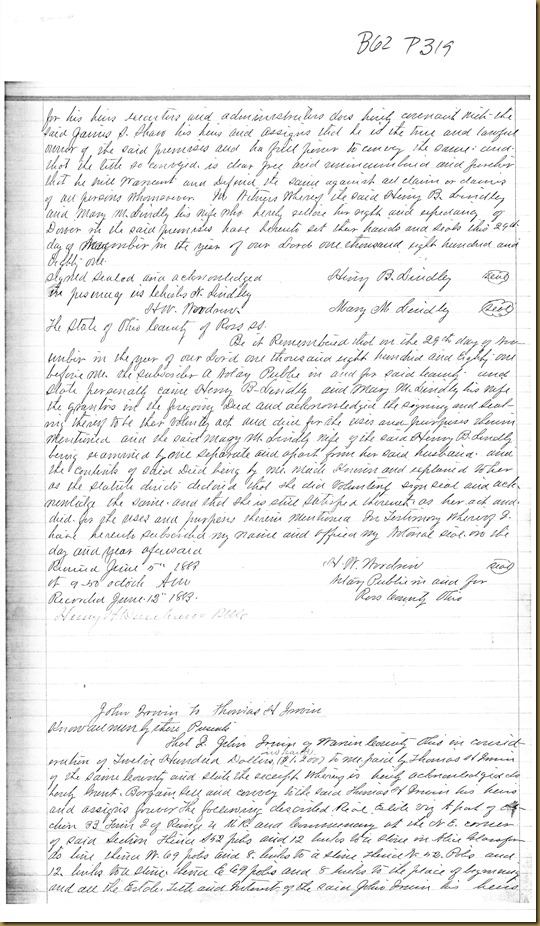 B62 P319
for his heirs executors and administrators does hereby covenant with the
said James S. Shaw his heirs and assigns that he is the true and lawful
owner of the said premises and has full power to convey the same: and
that the title so conveyed is clear free and unincumbered and further
that he will Warrant and Defend the same against all claim or claims
of all persons whomsoever. In Witness Whereof the said Henry B. Lindley
and Mary M. Lindly his wife who hereby release her right and expectancy of
Dower in the said premises have hereunto set their hands and seals this 29th
day of November in the year of our Lord one thousand eight hundred and
Eighty one.
Signed sealed and acknowledged Henry B. Lindley Seal
in presence of us N. Lindley
H.W. Woodrow. Mary M Lindley Seal
The State of Ohio County of Ross SS.
Be it Remembered that on the 29th day of No
vember in the year of our Lord one thousand eight hundred and Eighty one
before me the subscriber a Notary Public in and for said County and
State personally came Henry B. Lindly and Mary M. Lindly his wife
the grantors in the foregoing Deed and acknowledged the signing and seal
ing thereof to be their voluntary act and deed for the uses and purposes therein
mentioned and the said Mary M. Lindly wife of the said Henry B. Lindly
being examined by me separate and apart from her said husband and
the contents of said Deed being by me made known and explained to her
as the statute directs declared that she did voluntary sign seal and ack
nowledge the same and that she is still satisfied therewith as her act and
deed for the uses and purposes therein mentioned In Testimony Whereof I
have hereunto subscribed my name and affixed my Notarial seal on the
day and year aforesaid
Received June 5th 1883 H.W. Woodrow Seal
at oclock AM Notary Public in and for
Recorded June 12th 1883. Ross County Ohio
Henry
John Irwin to Thomas H Irwin
Know all men by these Presents
That I John Irwin of Warren County Ohio in consid
eration of Twelve Hundred Dollars, ($1.200) to me paid by Thomas H Irwin
of the same County and state the receipt whereof is hereby acknowledged do
hereby Grant. Bargain sell and convey to the said Thomas H Irwin his heirs
and assigns forever the following described Real Estate viz A part of Se
ction 33 Town of Range and Commencing at the N.E. corner
of said Section thence S 52 poles and 12 links to a stone in
line thence W. 69 poles and 8 links to a stone thence N. 52 Poles and
12 links to a stone thence E 69 poles and 8 links to the place of beginning
and all the Estate Title and Interest of the said John Irwin his heirs